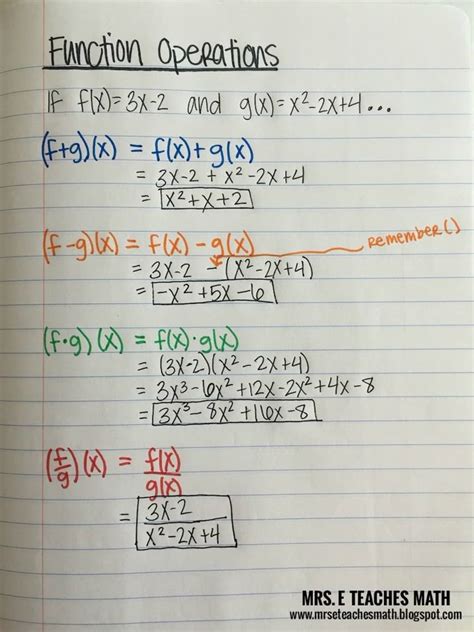 Function Operations
If f(x)=3x-2 and g(x)=x²-2x+4...
(f+g)(x) = f(x)+g(x)
= 3x-2 + x²-2x+4
= x²+x+2
(f-g)(x) = f(x)-g(x)
Remember ()
= 3x-2 -(x²-2x+4)
= -x²+5x-6
(f·g)(x) = f(x)·g(x)
= (3x-2)(x²-2x+4)
= 3x³-6x²+12x-2x²+4x-8
= 3x³-8x²+16x-8
(f/g)(x) = f(x)/g(x)
= 3x-2/x²-2x+4
MRS. E TEACHES MATH
www.mrseteachesmath.blogspot.com